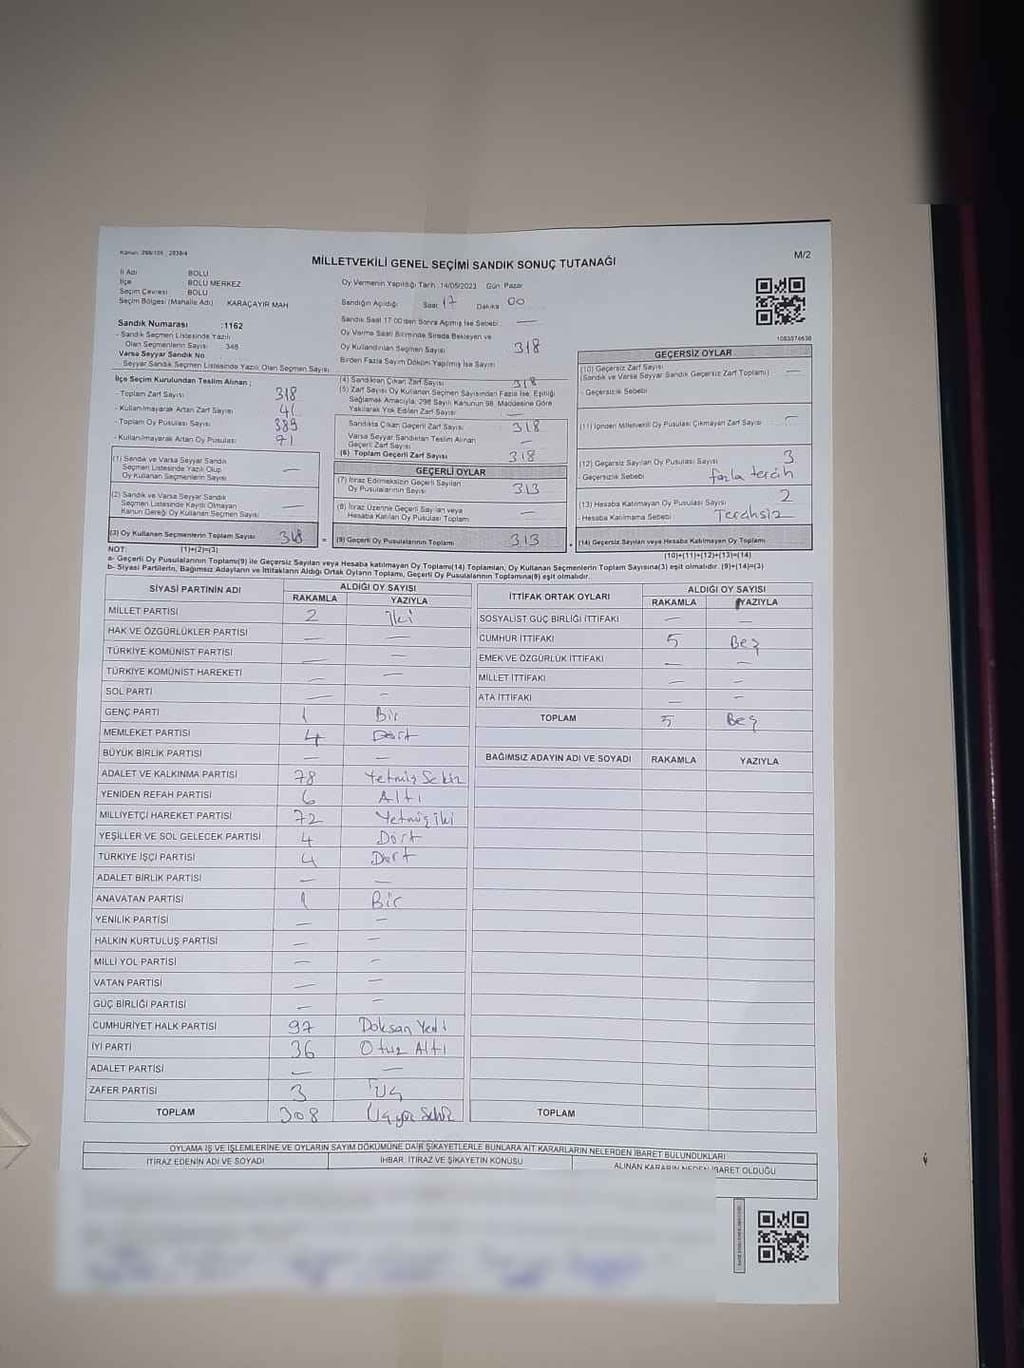 Kanun: 298/105 2839/4
MİLLETVEKİLİ GENEL SEÇİMİ SANDIK SONUÇ TUTANAĞI
M/2
İl Adı BOLU
İlçe BOLU MERKEZ
Seçim Çevresi BOLU
Seçim Bölgesi (Mahalle Adı) KARAÇAYIR MAH
Oy Vermenin Yapıldığı Tarih :14/05/2023 Gün: Pazar
Sandığın Açıldığı Saat 17 Dakika 00
Sandık Saat 17:00'den Sonra Açılmış İse Sebebi: —
Oy Verme Saati Bitiminde Sırada Bekleyen ve
Oy Kullandırılan Seçmen Sayısı 318
Birden Fazla Sayım Dökümü Yapılmış İse Sayısı
Sandık Numarası :1162
- Sandık Seçmen Listesinde Yazılı
Olan Seçmenlerin Sayısı 346
Varsa Seyyar Sandık No
Seyyar Sandık Seçmen Listesinde Yazılı Olan Seçmen Sayısı
İlçe Seçim Kurulundan Teslim Alınan ;
- Toplam Zarf Sayısı 318
- Kullanılmayarak Artan Zarf Sayısı 41
- Toplam Oy Pusulası Sayısı 389
- Kullanılmayarak Artan Oy Pusulası 71
(1) Sandık ve Varsa Seyyar Sandık
Seçmen Listesinde Yazılı Olup
Oy Kullanan Seçmenlerin Sayısı —
(2) Sandık ve Varsa Seyyar Sandık
Seçmen Listesinde Kaydı Olmayan
Kanun Gereği Oy Kullanan Seçmen Sayısı —
(3) Oy Kullanan Seçmenlerin Toplam Sayısı 318
(1)+(2)=(3)
(4) Sandıktan Çıkan Zarf Sayısı 318
(5) Zarf Sayısı Oy Kullanan Seçmen Sayısından Fazla İse, Eşitliği
Sağlamak Amacıyla, 298 Sayılı Kanunun 98. Maddesine Göre
Yakılarak Yok Edilen Zarf Sayısı —
Sandıkta Çıkan Geçerli Zarf Sayısı 318
Varsa Seyyar Sandıktan Teslim Alınan
Geçerli Zarf Sayısı —
(6) Toplam Geçerli Zarf Sayısı 318
GEÇERLİ OYLAR
(7) İtiraz Edilmeksizin Geçerli Sayılan
Oy Pusulalarının Sayısı 313
(8) İtiraz Üzerine Geçerli Sayılan veya
Hesaba Katılan Oy Pusulası Toplamı —
(9) Geçerli Oy Pusulalarının Toplamı 313
1083074630
GEÇERSİZ OYLAR
(10) Geçersiz Zarf Sayısı
(Sandık ve Varsa Seyyar Sandık Geçersiz Zarf Toplamı) —
- Geçersizlik Sebebi
(11) İçinden Milletvekili Oy Pusulası Çıkmayan Zarf Sayısı —
(12) Geçersiz Sayılan Oy Pusulası Sayısı 3
- Geçersizlik Sebebi fazla tercih
(13) Hesaba Katılmayan Oy Pusulası Sayısı 2
- Hesaba Katılmama Sebebi
(14) Geçersiz Sayılan veya Hesaba Katılmayan Oy Toplamı
(10)+(11)+(12)+(13)=(14)
NOT:
a- Geçerli Oy Pusulaları Toplamı(9) ile Geçersiz Sayılan veya Hesaba katılmayan Oy Toplamı(14) Toplamları, Oy Kullanan Seçmenlerin Toplam Sayısına(3) eşit olmalıdır. (9)+(14)=(3)
b- Siyasi Partilerin, Bağımsız Adayların ve İttifakların Aldığı Ortak Oyların Toplamı, Geçerli Oy Pusulalarının Toplamına(9) eşit olmalıdır.
SİYASİ PARTİNİN ADI ALDIĞI OY SAYISI
RAKAMLA YAZIYLA
MİLLET PARTİSİ 2 İki
HAK VE ÖZGÜRLÜKLER PARTİSİ — —
TÜRKİYE KOMÜNİST PARTİSİ — —
TÜRKİYE KOMÜNİST HAREKETİ — —
SOL PARTİ — —
GENÇ PARTİ 1 Bir
MEMLEKET PARTİSİ 4 Dört
BÜYÜK BİRLİK PARTİSİ — —
ADALET VE KALKINMA PARTİSİ 78 Yetmiş Sekiz
YENİDEN REFAH PARTİSİ 6 Altı
MİLLİYETÇİ HAREKET PARTİSİ 72 Yetmiş iki
YEŞİLLER VE SOL GELECEK PARTİSİ 4 Dört
TÜRKİYE İŞÇİ PARTİSİ 4 Dört
ADALET BİRLİK PARTİSİ — —
ANAVATAN PARTİSİ 1 Bir
YENİLİK PARTİSİ — —
HALKIN KURTULUŞ PARTİSİ — —
MİLLİ YOL PARTİSİ — —
VATAN PARTİSİ — —
GÜÇ BİRLİĞİ PARTİSİ — —
CUMHURİYET HALK PARTİSİ 97 Doksan Yedi
İYİ PARTİ 36 Otuz Altı
ADALET PARTİSİ — —
ZAFER PARTİSİ 3 Üç
TOPLAM 308 Üçyüz Sekiz
İTTİFAK ORTAK OYLARI ALDIĞI OY SAYISI
RAKAMLA YAZIYLA
SOSYALİST GÜÇ BİRLİĞİ İTTİFAKI — —
CUMHUR İTTİFAKI 5 Beş
EMEK VE ÖZGÜRLÜK İTTİFAKI — —
MİLLET İTTİFAKI — —
ATA İTTİFAKI — —
TOPLAM 5 Beş
BAĞIMSIZ ADAYIN ADI VE SOYADI RAKAMLA YAZIYLA
TOPLAM
OYLAMA İŞ VE İŞLEMLERİNE VE OYLARIN SAYIM DÖKÜMÜNE DAİR ŞİKAYETLERLE BUNLARA AİT KARARLARIN NELERDEN İBARET BULUNDUKLARI
İTİRAZ EDENİN ADI VE SOYADI İHBAR, İTİRAZ VE ŞİKAYETİN KONUSU ALINAN KARARIN NEDEN İBARET OLDUĞU